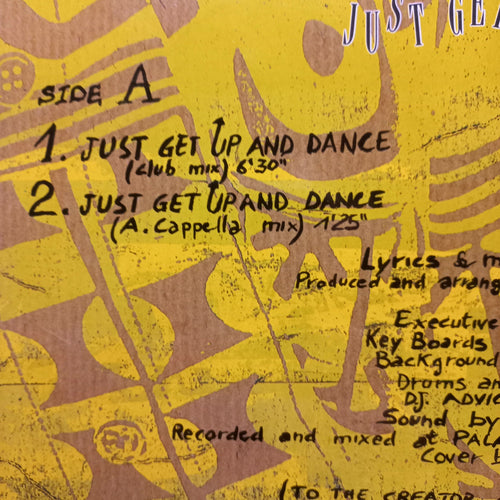 JUST GET
SIDE A
1. JUST GET UP AND DANCE
(club mix) 6'30"
2. JUST GET UP AND DANCE
(A. Cappella mix) 1'25"
Lyrics & m
Produced and arrang
Executive
Key Boards
Background
Drums an
DJ. ADVIC
Sound by
Recorded and mixed at PALA
Cover b
(TO THE CREATOR